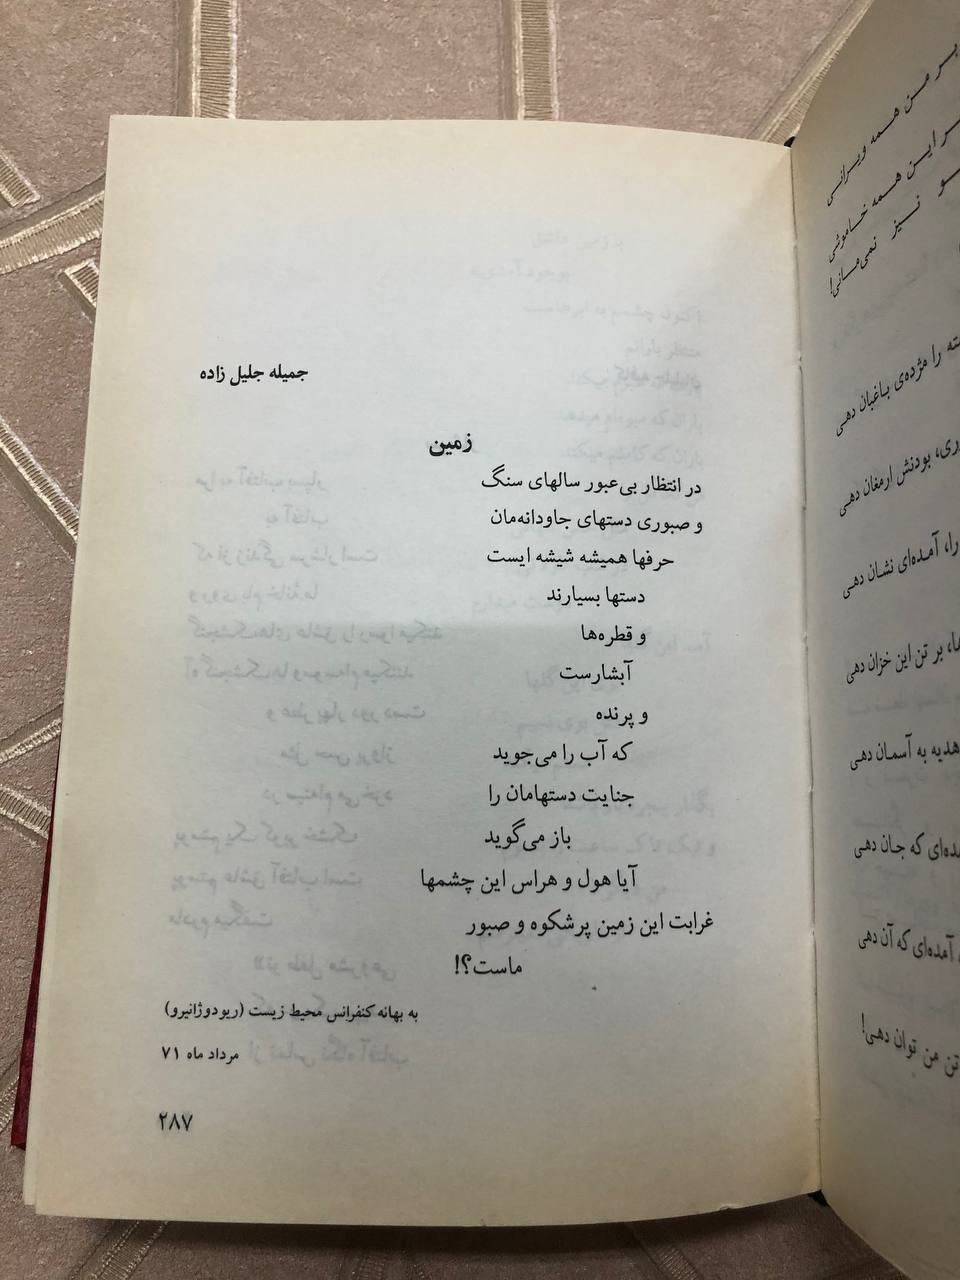 جمیله جلیل زاده
زمین
در انتظار بی‌عبور سالهای سنگ
و صبوری دستهای جاودانه‌مان
حرفها همیشه شیشه ایست
دستها بسیارند
و قطره‌ها
آبشارست
و پرنده
که آب را می‌جوید
جنایت دستهامان را
باز می‌گوید
آیا هول و هراس این چشمها
غرابت این زمین پرشکوه و صبور
ماست؟!
به بهانه کنفرانس محیط زیست (ریودوژانیرو)
مرداد ماه ۷۱
۲۸۷
بر من همه ویرانی
این همه خاموشی
نیز نمی‌مانی!
را مژده‌ی باغبان دهی
بودنش ارمغان دهی
را، آمده‌ای نشان دهی
بر تن این خزان دهی
هدیه به آسمان دهی
که جان دهی
آمده‌ای که آن دهی
تن من توان دهی!